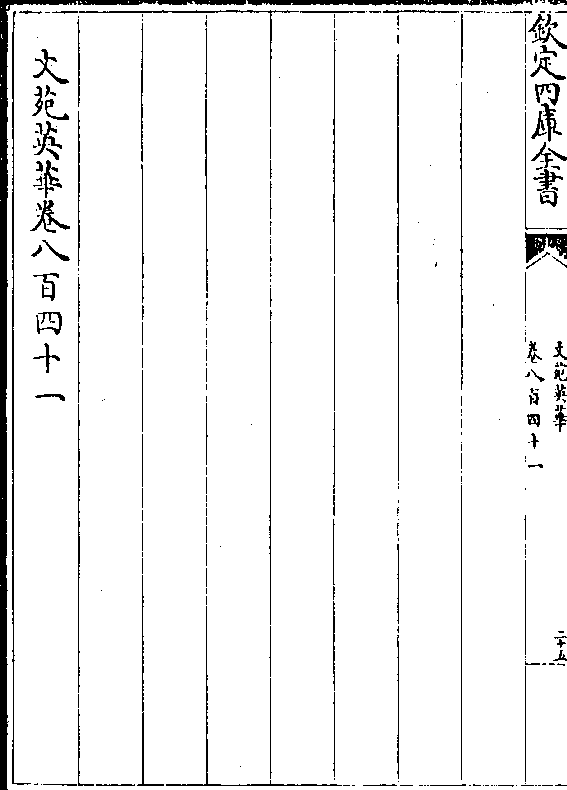 欽定四庫全書
文苑英華
卷八百四十一
二十五
文苑英華卷八百四十一